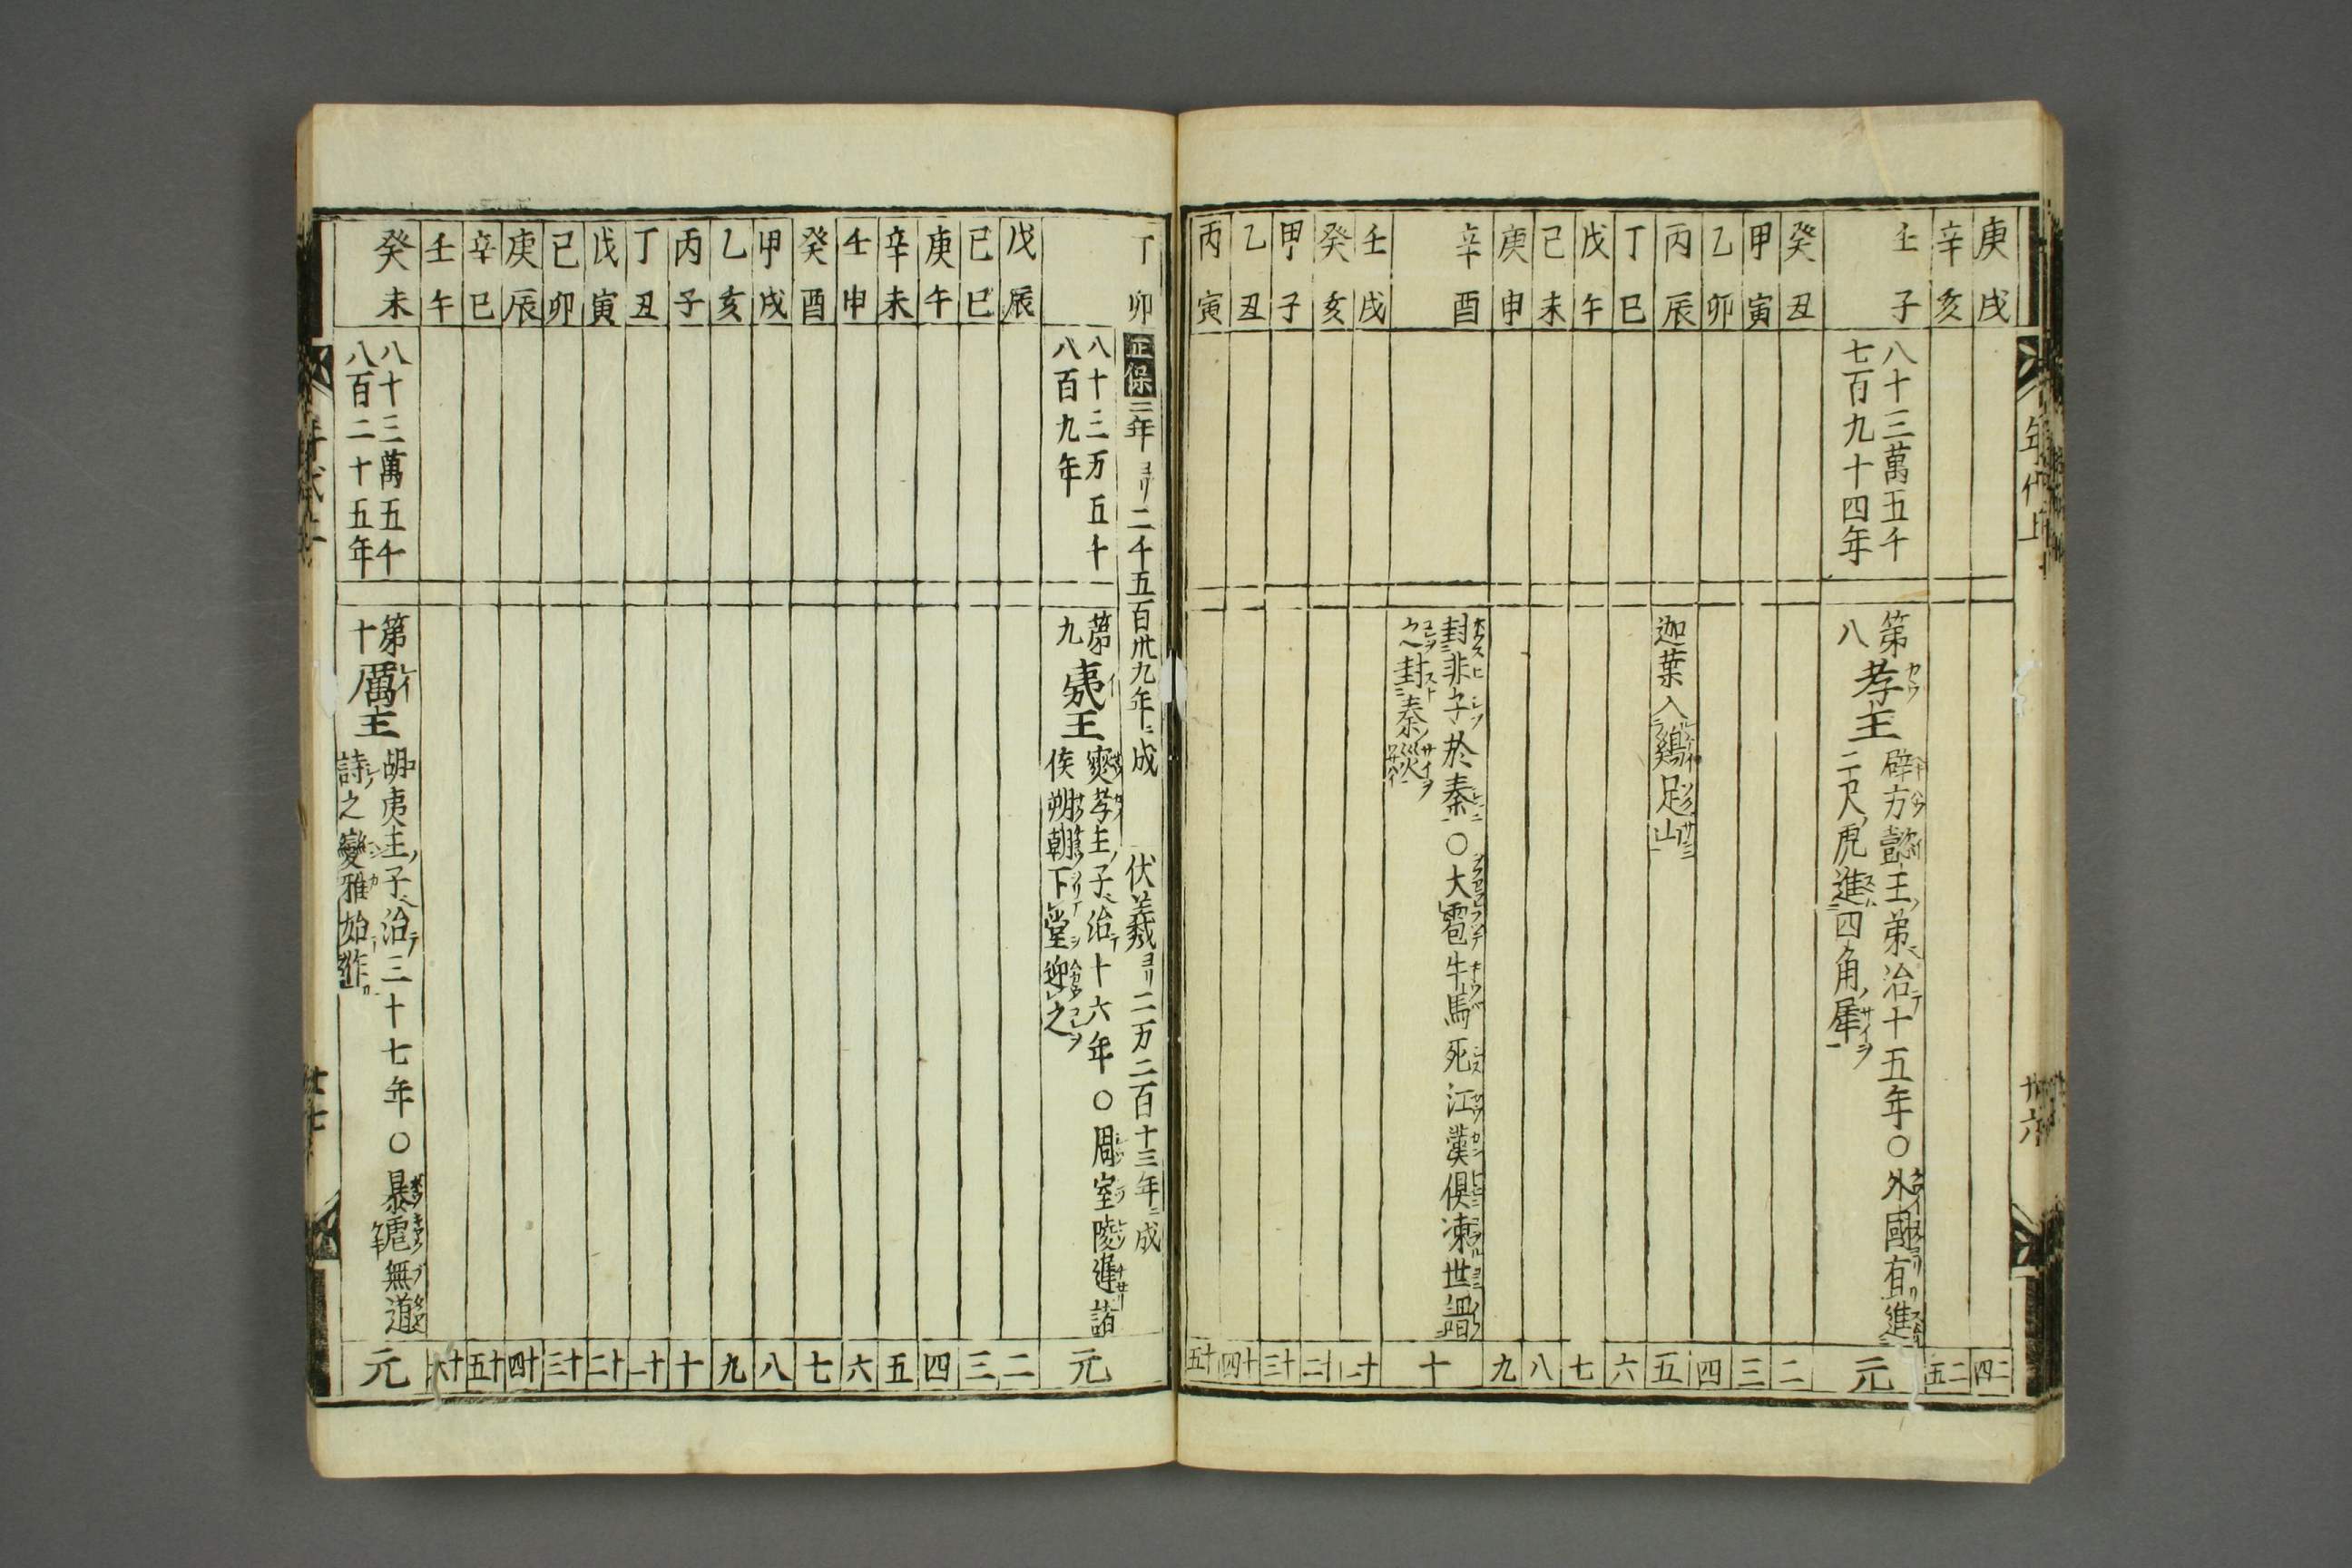 年代上
廿六
庚戌
二四
辛亥
二五
壬子
八十三萬五千
七百九十四年
第八
孝王
辟方懿王ノ弟治テ十五年〇外國有リ進
二尺ノ虎進四角ノ犀サイヲ
元
癸丑
二
甲寅
三
乙卯
四
丙辰
迦葉入鷄足山
五
丁巳
六
戊午
七
己未
八
庚申
九
辛酉
封非子於秦〇大雹牛馬死江漢俱凍世謂
之封秦災
十
壬戌
十一
癸亥
十二
甲子
十三
乙丑
十四
丙寅
十五
丁卯
正保二年ヨリ二千五百卅九年ニ成
伏羲ヨリ二万二百十三年ニ成
八十三万五千
八百九年
第九
夷王
燮孝王ノ子治テ十六年〇周室陵遲諸
侯朔朝下堂迎之
元
戊辰
二
己巳
三
庚午
四
辛未
五
壬申
六
癸酉
七
甲戌
八
乙亥
九
丙子
十
丁丑
十一
戊寅
十二
己卯
十三
庚辰
十四
辛巳
十五
壬午
十六
癸未
八十三萬五千
八百二十五年
第十
厲王
胡夷王ノ子治テ三十七年〇暴虐無道
詩之變雅始作
元
廿七